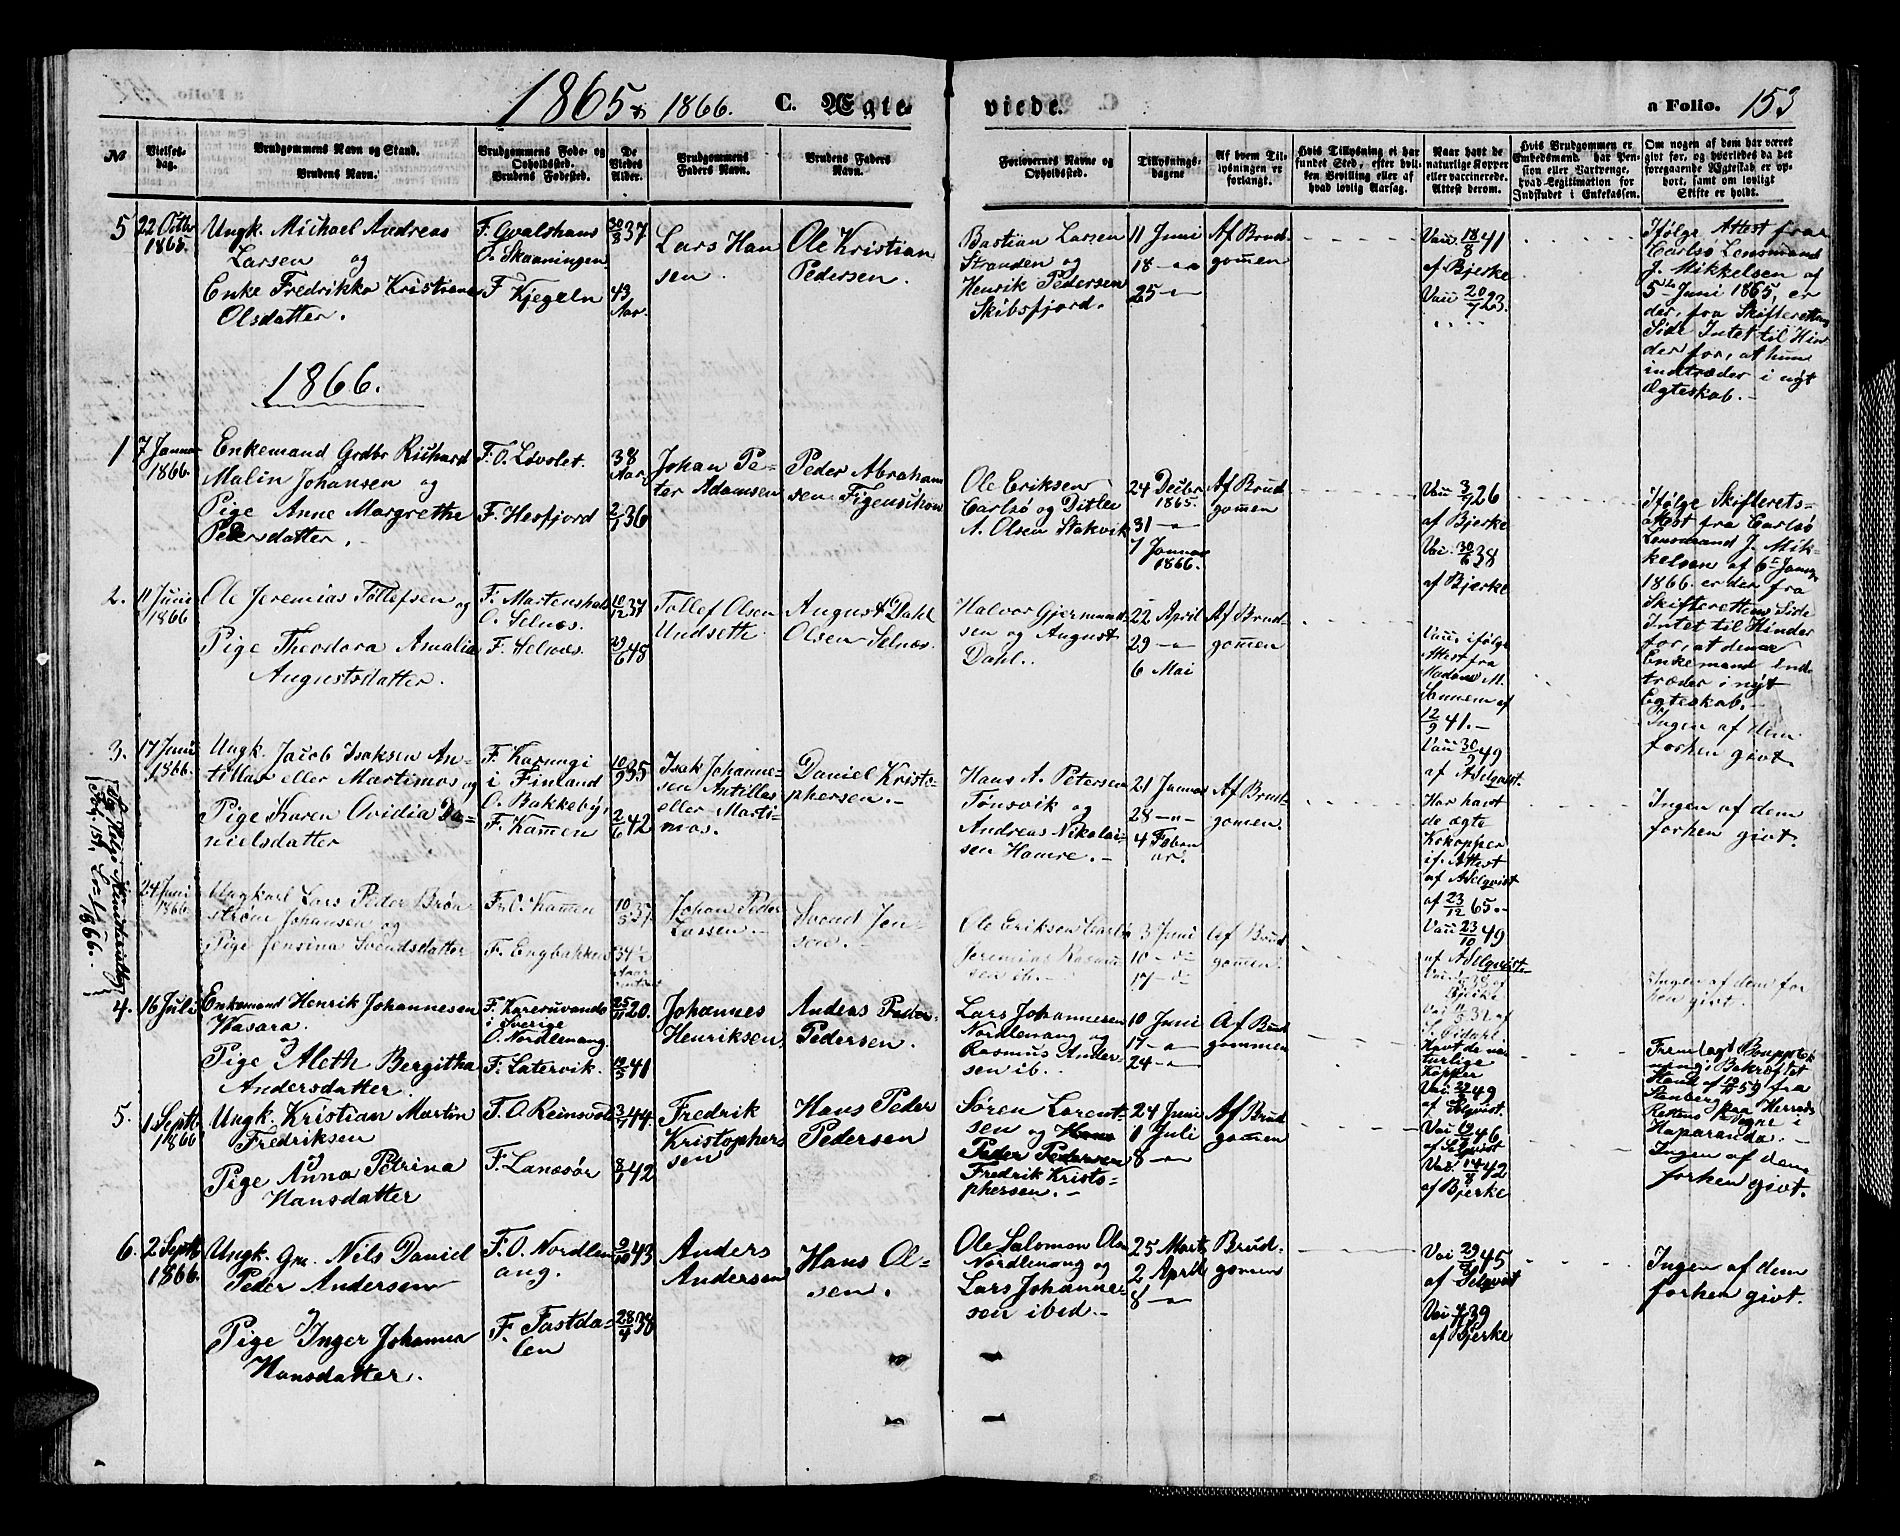 1865 & 1866. C. Ægte viede. a Folio. 153
№
Vielses-
dag.
Brudgommens Navn og Stand.
Brudens Navn.
Brudgommens Føde- og
Opholdssted.
Brudens Fødested.
De
Viedes
Alder.
Brudgommens
Faders Navn.
Brudens Faders
Navn.
Forlovernes Navne og
Opholdssted.
Tillysnings-
dagene
Af hvem Til-
lysningen er
forlangt.
Hvis Tillysning ei har
fundet Sted, efter hvil-
ken Bevilling eller af
hvad lovlig Aarsag.
Naar havt de
naturlige Kopper
eller vaccinerede.
Attest derom.
Hvis Brudgommen er
Embedsmand, har Pen-
sion eller Vartpenge,
hvad Legitimation for
Indskudet i Enkekassen.
Om nogen af dem har været
givt før, og hvorledes da det
foregaaende Ægteskab er op-
hørt, samt om lovligt
Skifte er holdt.
5
22 Octbr
1865.
Ungk. Michael Andreas
Larsen og
Enke Fredrikka Kristiane
Olsdatter.
F. Hvalshaus
O. Skaaningen
F. Kjegeln
30/3 37
43
Aar.
Lars Han
sen.
Ole Kristian
Pedersen.
Bastian Larsen
Stranden og
Henrik Pedersen
Skibsfjord.
11 Juni
18 -"-
25 -"-
Af Brud-
gomen
Vacc. 18/8 41
af Bjerke
Vacc 20/7 23.
Ifølge Attest fra
Carlsø Lensmand
J. Mikkelsen af
5te Juni 1865, er
der, fra Skifterettens
Side Intet til Hin
der for, at hun
indtræder i nyt
Ægteskab. -
1866.
1
7 Januar
1866
Enkemand Grdbr Richard
Malin Johansen og
Pige Anne Margrethe
Pedersdatter.
F. O. Løvolet.
F. Hesfjord
38
Aar
2/1 36
Johan Pe-
ter Adamsen
Peder Abraham
sen Figenschou
Ole Eriksen
Carlsø og Ditlev
A. Olsen Stakvik
24 Decbr
1865.
31 -"-
7 Januar
1866.
Af Brud
gomen
Vacc 3/7 26
af Bjerke
Vac. 30/6 38
af Bjerke
Ifølge Skifterets-
attest fra Carlsø
Lensmand J. Mik-
kelsen af 6te Januar
1866 er der fra
Skifterettens Side
Intet til Hinder
for, at denne
Enkemand ind
træder i nyt
Egteskab. -
2.
11 Juni
1866
Ole Jeremias Tollefsen og
Pige Theodora Amalia
Augustsdatter.
F. Martenshals
O. Selnæs.
F. Selnæs.
10/12 37
29/6 45
Tollef Olsen
Undseth.
August Dahl
Olsen Selnæs.
Halvor Gjermund-
sen og August
Dahl.
22 April
29 -"-
6 Mai
Af Brud
gomen
Vacc. ifølge
Attest fra
Madam M.
Sannem af
12/9 41. -
Vacc 30/9 49
af A Selqvist.
Ingen af dem
forhen givt.
3.
17 Juni
1866.
Ungk. Jacob Isaksen An-
tillas eller Martimos og
Pige Karen Ovidia Da-
nielsdatter
F. Karungi
i Finland
O. Bakkeby,
F. Kamen
10/9 35
2/6 42
Isak Johanne-
sen Antillas
eller Marti-
mos.
Daniel Kristo-
phersen. -
Hans A. Petersen
Tønsvik og
Andreas Nikolai-
sen Hamre. -
21 Januar
28 -"-
4 Febru
ar.
Af Brud-
gomen.
Har havt
de ægte
Kokopper
if. Attest
af A Selqvist
af 23/12 65. -
Vacc 23/10 49
af A Selqvist
Ingen af dem
forhen givt.
24 Juni
1866
Ungkarl Lars Peder Brøn
strøm Johansen og
Pige Jensina Svendsdatter
F. O. Kamen
F. Engbakken
10/5 37
34½
Aar
Johan Peder
Larsen.
Svend Jen-
sen.
Ole Eriksen Carlsø
Jeremias Rasmu
sen ib. -
3 Juni
10 -"-
17 -"-
Af Brud
gomen.
Ingen af dem for
hen givt.
4.
16 Juli
Enkemand Henrik Johannesen
Wasara.
og
Pige Aleth Bergitha
Andersdatter.
F. Kareruvando
i Sverige
O. Nordlenang.
F. Latervik.
25/11 20.
12/3 41
Johannes
Henriksen
Anders Peder
Pedersen.
Lars Johannesen
Nordlenang og
Rasmus Ander-
sen ib.
10 Juni
17 -"-
24 -"-
Af Brud
gommen
Havt de na
turlige
Kopper
af Selqvist.
Haparanda. -
5.
1 Septbr
1866
Ungk. Kristian Martin
Fredriksen
og
Pige Anna Petrina
Hansdatter
F. O. Reinsvold
F. Lanesør
3/7 44
8/7 42
Fredrik
Kristophers
sen
Hans Peder
Pedersen
Søren Lorent-
sen og
Peder Pedersen
Fredrik Kristo-
phersen. -
24 Juni
1 Juli
8 -"-
Af Brud
gomen
af Selqvist
Vac. 14/8 42
af Bjerke
Ingen af dem
forhen givt.
6.
2 Septbr
1866.
Ungk. Gm. Nils Daniel
Peder Andersen
og
Pige Inger Johanna
Hansdatter.
F. O. Nordlen
ang.
F. Fastda-
len
9/10 43
28/4 38
Anders
Andersen
Hans Ol-
sen.
Ole Salomon Olsen
Nordlenang og
Lars Johanne-
sen ibid. -
25 Marts
2 April
8 -"-
Brud-
gomens
Vac 29/8 45
af Selqvist
Vac 4/7 39
af Bjerke
Ingen af dem
forhen givt.
1866.